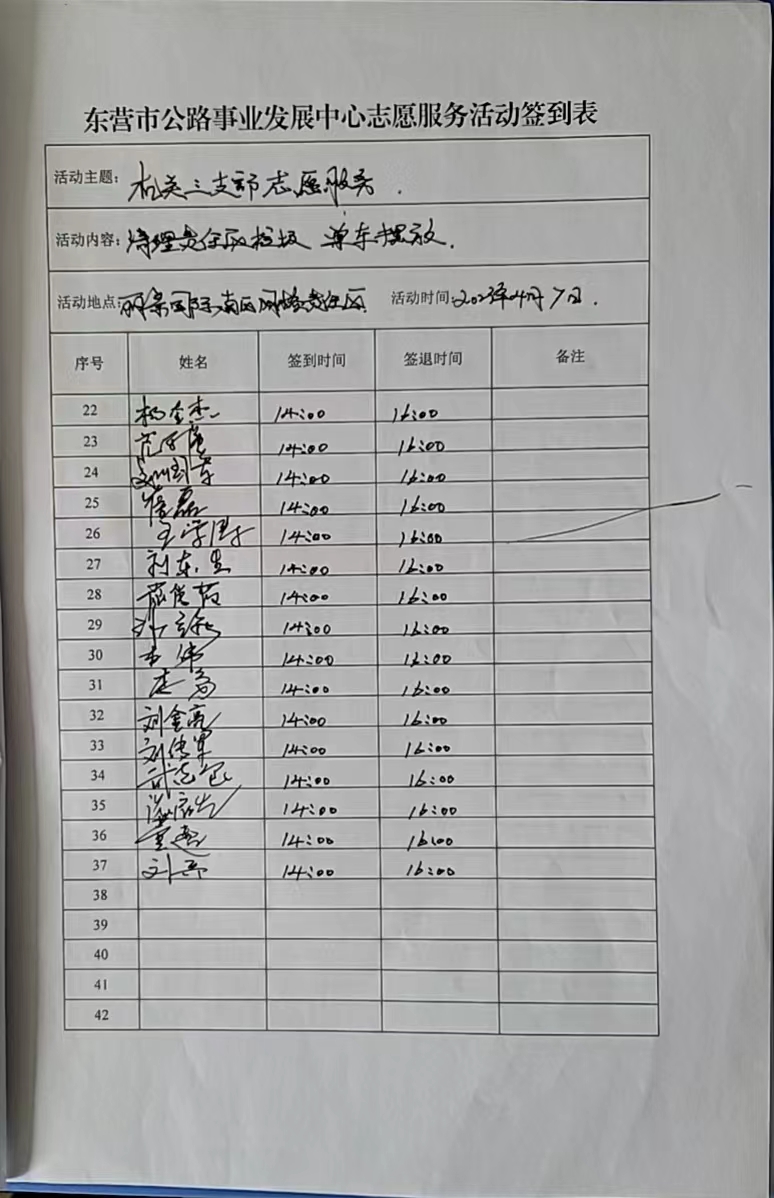 东营市公路事业发展中心志愿服务活动签到表
活动主题：机关三支部志愿服务.
活动内容：清理责任区垃圾 单车摆放.
活动地点：丽景国际南区网格责任区 活动时间：2023年4月7日.
序号 姓名 签到时间 签退时间 备注
22 杨金杰 14:00 16:00
23 14:00 16:00
24 14:00 16:00
25 14:00 16:00
26 14:00 16:00
27 刘东 14:00 16:00
28 14:00 16:00
29 14:00 16:00
30 14:00 16:00
31 14:00 16:00
32 刘金亮 14:00 16:00
33 刘传军 14:00 16:00
34 14:00 16:00
35 14:00 16:00
36 14:00 16:00
37 刘 14:00 16:00
38
39
40
41
42